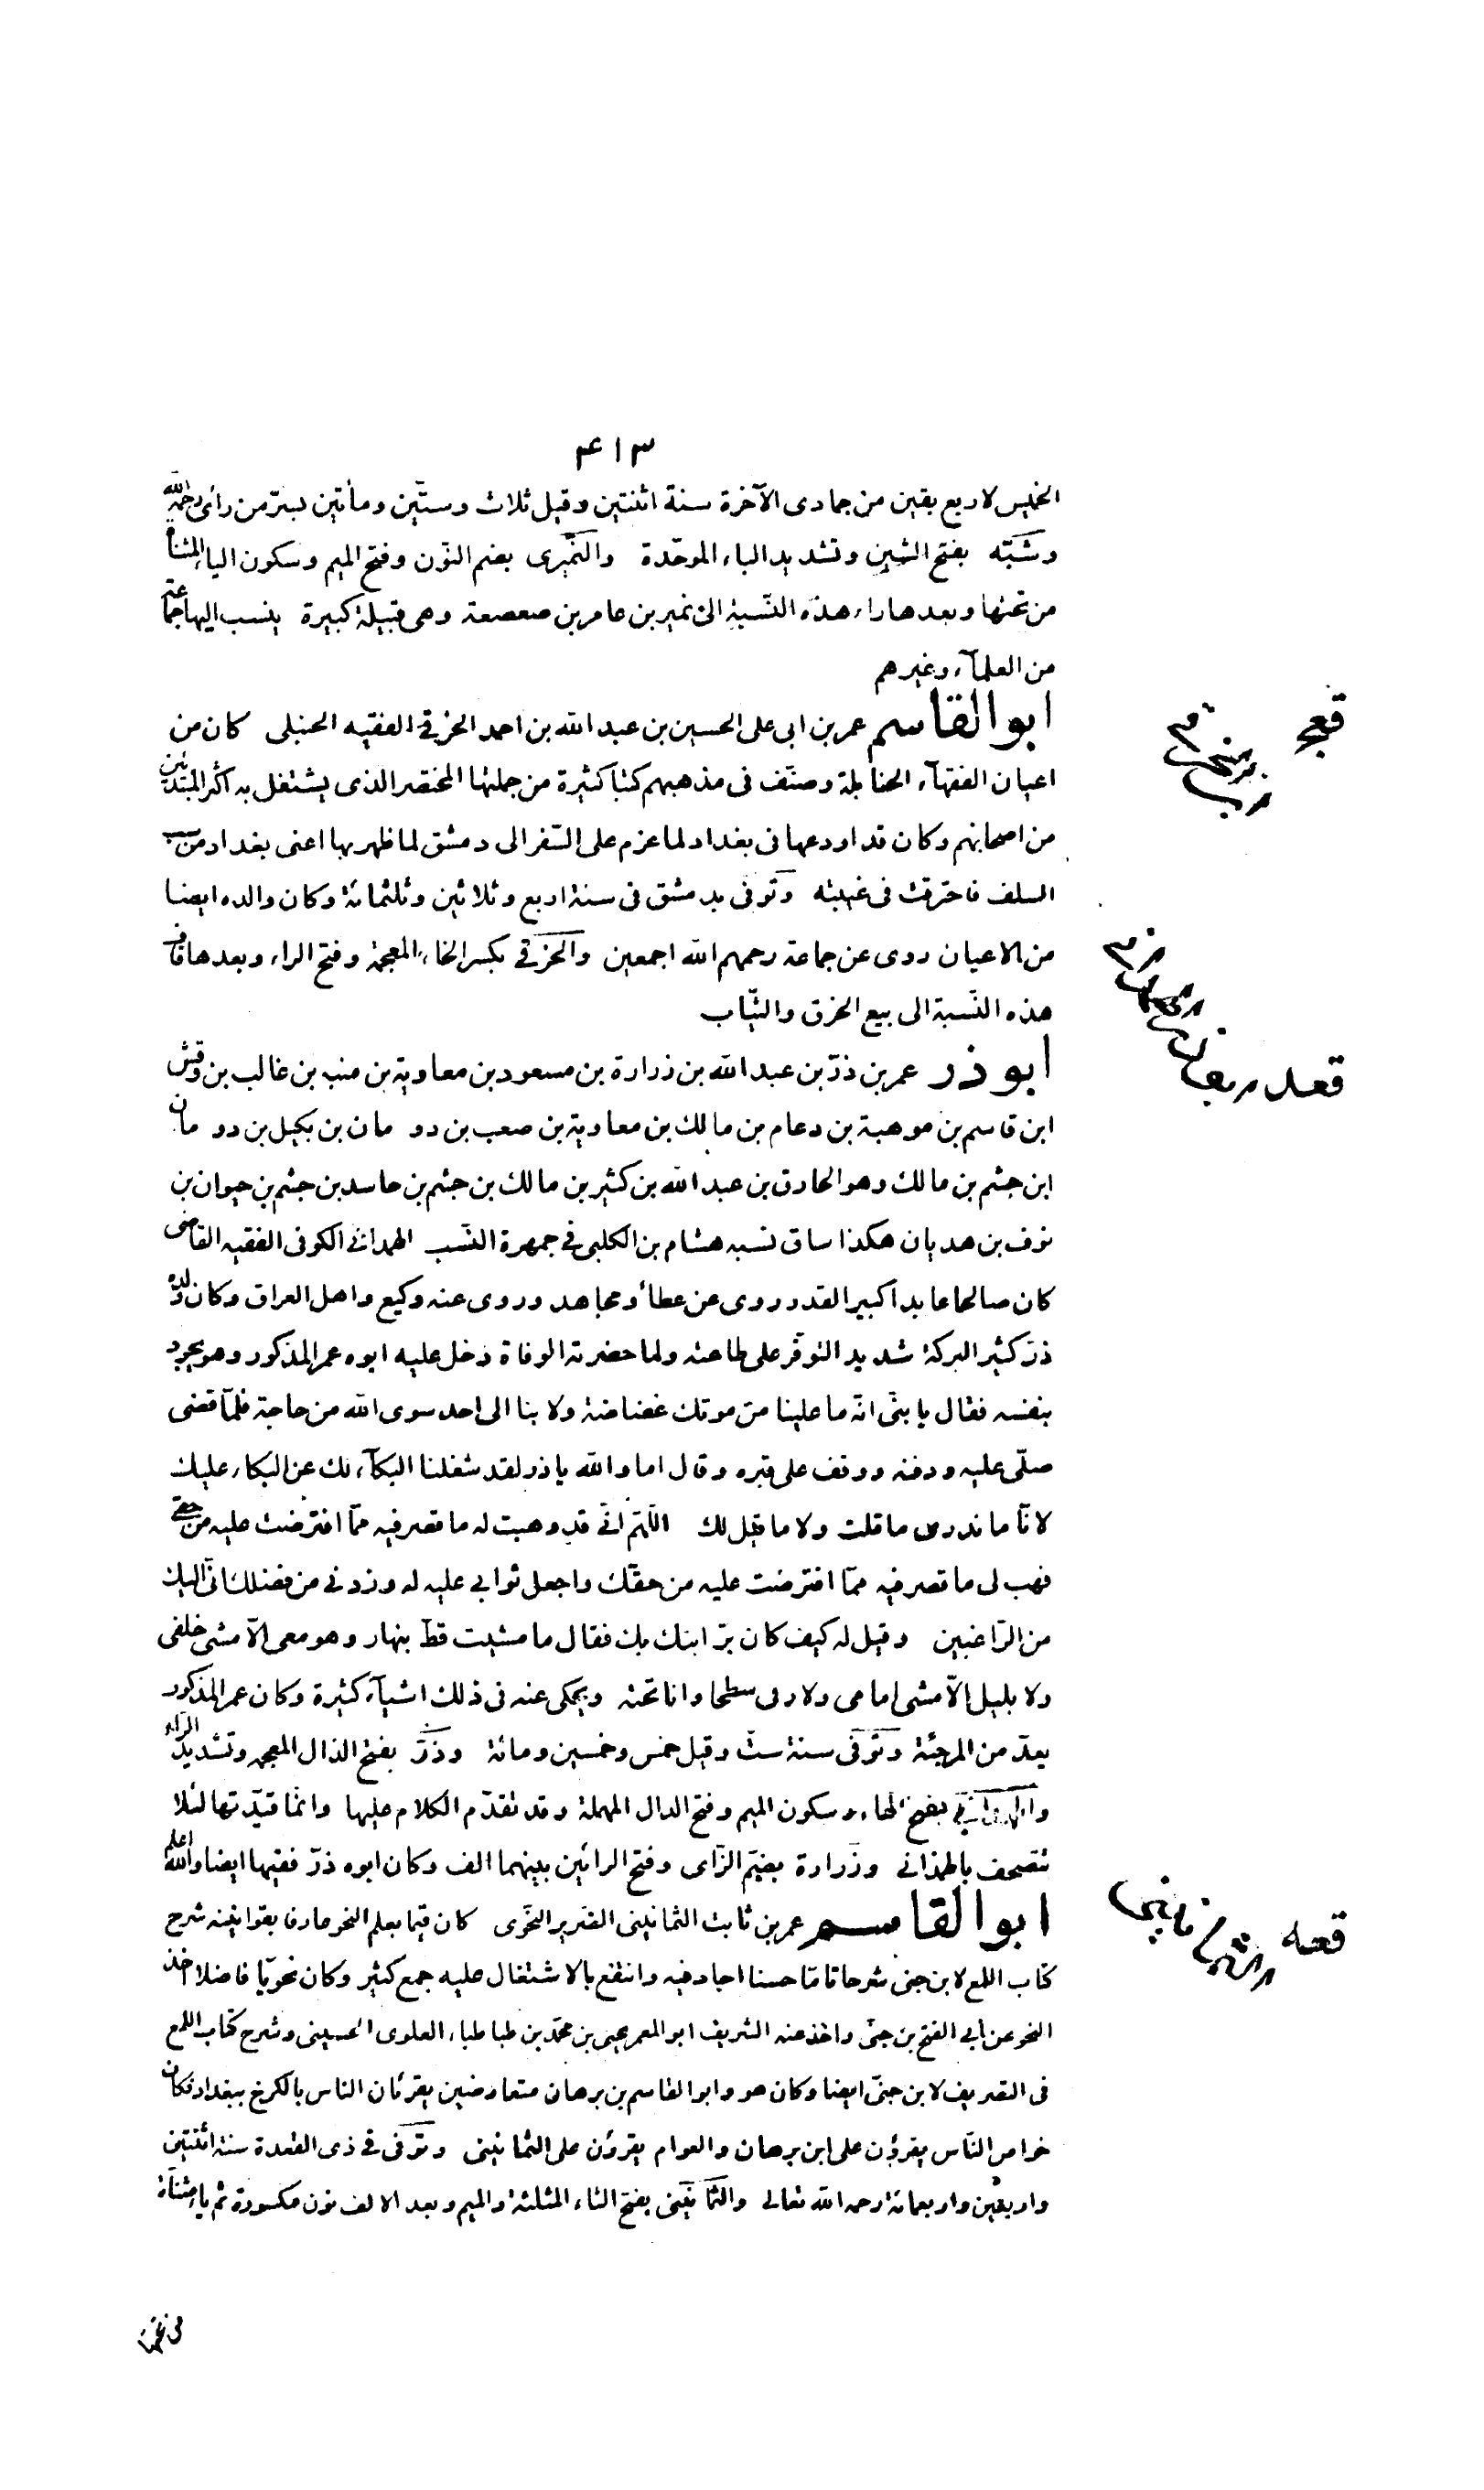 ٤١٣
الخميس لاربع بقين من جمادى الآخرة سنة اثنتين وقيل ثلاث وستّين ومأتين بسرّمن رأى رحمه الله
وشبّه بفتح الشين وتشديد الباء الموحّدة والنّميرى بضم النّون وفتح الميم وسكون الياء المثناة
من تحتها وبعدها راء هذه النّسبة الى نمير بن عامر بن صعصعة وهى قبيلة كبيرة ينسب اليها جماعة
من العلمآء وغيرهم
ابو القاسم عمر بن ابى على الحسين بن عبد الله بن احمد الخرقى الفقيه الحنبلى كان من
اعيان الفقهآء الحنابلة وصنّف فى مذهبهم كتبا كثيرة من جملتها المختصر الذى يشتغل به اكثر المبتدئين
من اصحابهم وكان قد اودعها فى بغداد لما عزم على السّفر الى دمشق لما ظهر بها اعنى بغداد من سب
السلف فاحترقت فى غيبته وتوفى بدمشق فى سنة اربع وثلاثين وثلثمائة وكان والده ايضا
من الاعيان روى عن جماعة رحمهم الله اجمعين والخرقى بكسر الخاء المعجمة وفتح الراء وبعدها قاف
هذه النّسبة الى بيع الخرق والثّياب
ابو ذر عمر بن ذرّ بن عبد الله بن زرارة بن مسعود بن معاوية بن منبه بن غالب بن وقش
ابن قاسم بن موهبة بن دعام بن مالك بن معاوية بن صعب بن دو مان بن بكيل بن دو مان
ابن جشم بن مالك وهو الحارق بن عبد الله بن كثير بن مالك بن جشم بن حاسد بن جشم بن حيوان بن
نوف بن همدان هكذا ساق نسبه هشام بن الكلبى فى جمهرة النّسب الهمدانى الكوفى الفقيه القاضى
كان صالحا عابدا كبير القدر روى عن عطاء ومجاهد وروى عنه وكيع واهل العراق وكان ولده
ذرّ كثير البركة شديد التوفّر على طاعته ولما حضرته الوفاة دخل عليه ابوه عمر المذكور وهو يجود
بنفسه فقال يا بنىّ انّه ما علينا من موتك غضاضة ولا بنا الى احد سوى الله من حاجة فلمّا قضى
صلّى عليه ودفنه ووقف على قبره وقال اما والله يا ذر لقد شغلنا البكآء لك عن البكاء عليك
لانّا ما ندرى ما قلت ولا ما قيل لك اللّهمّ انّى قد وهبت له ما قصر فيه ممّا افترضت عليه من حقى
فهب لى ما قصر فيه ممّا افترضت عليه من حقّك واجعل ثوابى عليه له وزدنى من فضلك انّى اليك
من الرّاغبين وقيل له كيف كان برّ ابنك بك فقال ما مشيت قطّ بنهار وهو معى الّا مشى خلفى
ولا بليل الّا مشى امامى ولا رقى سطحا وانا تحته ويحكى عنه فى ذلك اشيآء كثيرة وكان عمر المذكور
يعدّ من المرجئة وتوفّى سنة ستّ وقيل خمس وخمسين ومائة وذرّ بفتح الذال المعجمه وتشديد الرّاء
والهمدانى بفتح الهاء وسكون الميم وفتح الدال المهملة وقد تقدّم الكلام عليها وانّما قيّدتها لئلا
تتصحف بالهمذانى وزرارة بضمّ الزّاى وفتح الرائين بينهما الف وكان ابوه ذرّ فقيها ايضا والله اعلم
ابو القاسم عمر بن ثابت الثمانينى الضّرير النّحوى كان قيّما بعلم النّحو عارفا بقوانينه شرح
كتاب اللمع لابن جنى شرحا تامّا حسنا اجاد فيه وانتفع بالاشتغال عليه جمع كثير وكان نحويّا فاضلا اخذ
النحو عن ابى الفتح بن جنىّ واخذ عنه الشريف ابو المعمر يحيى بن محمّد بن طباطباء العلوى الحسينى وشرح كتاب اللمع
فى التصريف لابن جنىّ ايضا وكان هو وابو القاسم بن برهان متعارضين يقرئان الناس بالكرخ ببغداد فكان
خواص النّاس يقرؤن على ابن برهان والعوام يقرؤن على الثمانينى وتوفى فى ذى القعدة سنة اثنتين
واربعين واربعمائة رحمه الله تعالى والثّمانينى بفتح الثاء المثلثة والميم وبعد الالف نون مكسورة ثم ياء مثنّاة